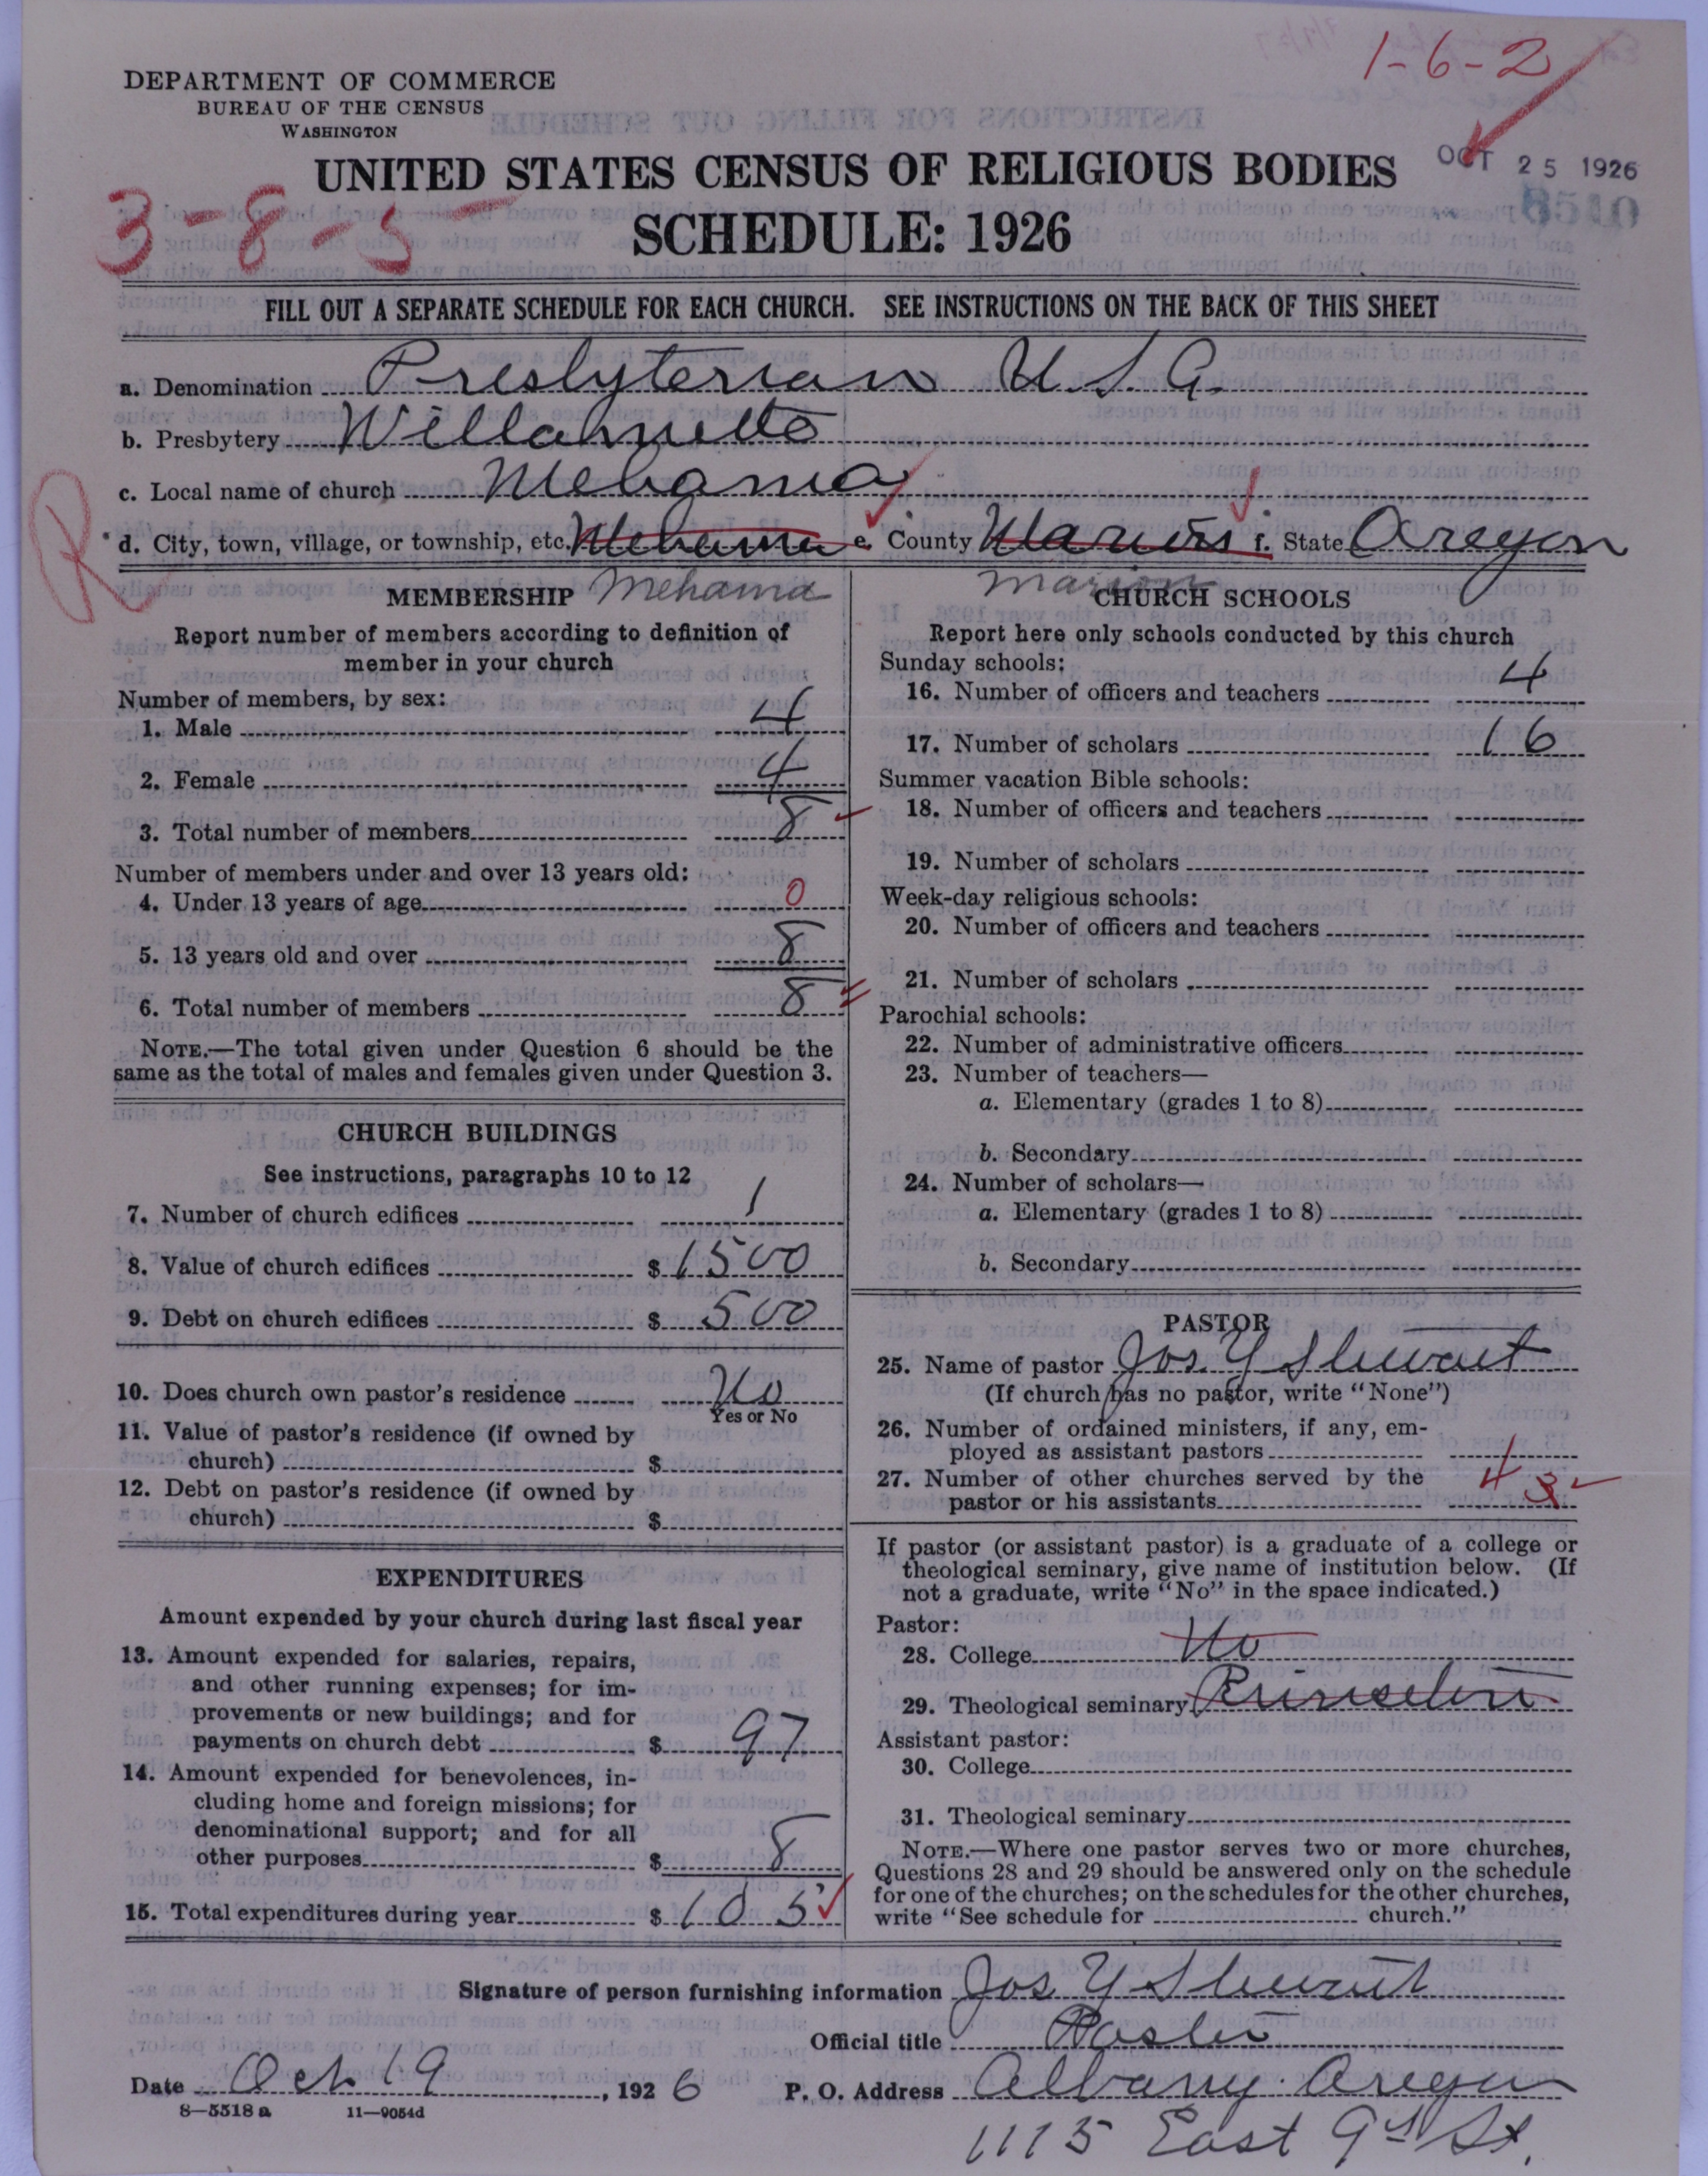 1-6-2
DEPARTMENT OF COMMERCE
BUREAU OF THE CENSUS
WASHINGTON
UNITED STATES CENSUS OF RELIGIOUS BODIES
OCT 25 1926
3-8-5
SCHEDULE: 1926
FILL OUT A SEPARATE SCHEDULE FOR EACH CHURCH. SEE INSTRUCTIONS ON THE BACK OF THIS SHEET
a. Denomination Presbyterian U.S.A.
b. Presbytery Willamette
c. Local name of church Mehama
R
d. City, town, village, or township, etc. Mehama e. County Marion f. State Oregon
Mehama Marion
MEMBERSHIP
Report number of members according to definition of
member in your church
Number of members, by sex:
1. Male 4
2. Female 4
3. Total number of members 8
Number of members under and over 13 years old:
4. Under 13 years of age 0
5. 13 years old and over 8
6. Total number of members 8
NOTE.—The total given under Question 6 should be the
same as the total of males and females given under Question 3.
CHURCH BUILDINGS
See instructions, paragraphs 10 to 12
7. Number of church edifices 1
8. Value of church edifices $ 1500
9. Debt on church edifices $ 500
10. Does church own pastor's residence No
Yes or No
11. Value of pastor's residence (if owned by
church) $
12. Debt on pastor's residence (if owned by
church) $
EXPENDITURES
Amount expended by your church during last fiscal year
13. Amount expended for salaries, repairs,
and other running expenses; for im-
provements or new buildings; and for
payments on church debt $ 97
14. Amount expended for benevolences, in-
cluding home and foreign missions; for
denominational support; and for all
other purposes $ 8
15. Total expenditures during year $ 105
CHURCH SCHOOLS
Report here only schools conducted by this church
Sunday schools:
16. Number of officers and teachers 4
17. Number of scholars 16
Summer vacation Bible schools:
18. Number of officers and teachers
19. Number of scholars
Week-day religious schools:
20. Number of officers and teachers
21. Number of scholars
Parochial schools:
22. Number of administrative officers
23. Number of teachers—
a. Elementary (grades 1 to 8)
b. Secondary
24. Number of scholars—
a. Elementary (grades 1 to 8)
b. Secondary
PASTOR
25. Name of pastor Jos Y Stewart
(If church has no pastor, write "None")
26. Number of ordained ministers, if any, em-
ployed as assistant pastors
27. Number of other churches served by the
pastor or his assistants 4 3
If pastor (or assistant pastor) is a graduate of a college or
theological seminary, give name of institution below. (If
not a graduate, write "No" in the space indicated.)
Pastor:
28. College No
29. Theological seminary Princeton
Assistant pastor:
30. College
31. Theological seminary
NOTE.—Where one pastor serves two or more churches,
Questions 28 and 29 should be answered only on the schedule
for one of the churches; on the schedules for the other churches,
write "See schedule for church."
Signature of person furnishing information Jos Y Stewart
Official title Pastor
Date Oct 19, 1926 P. O. Address Albany Oregon
8—5518 a 11—9054d
1115 East 9th St.